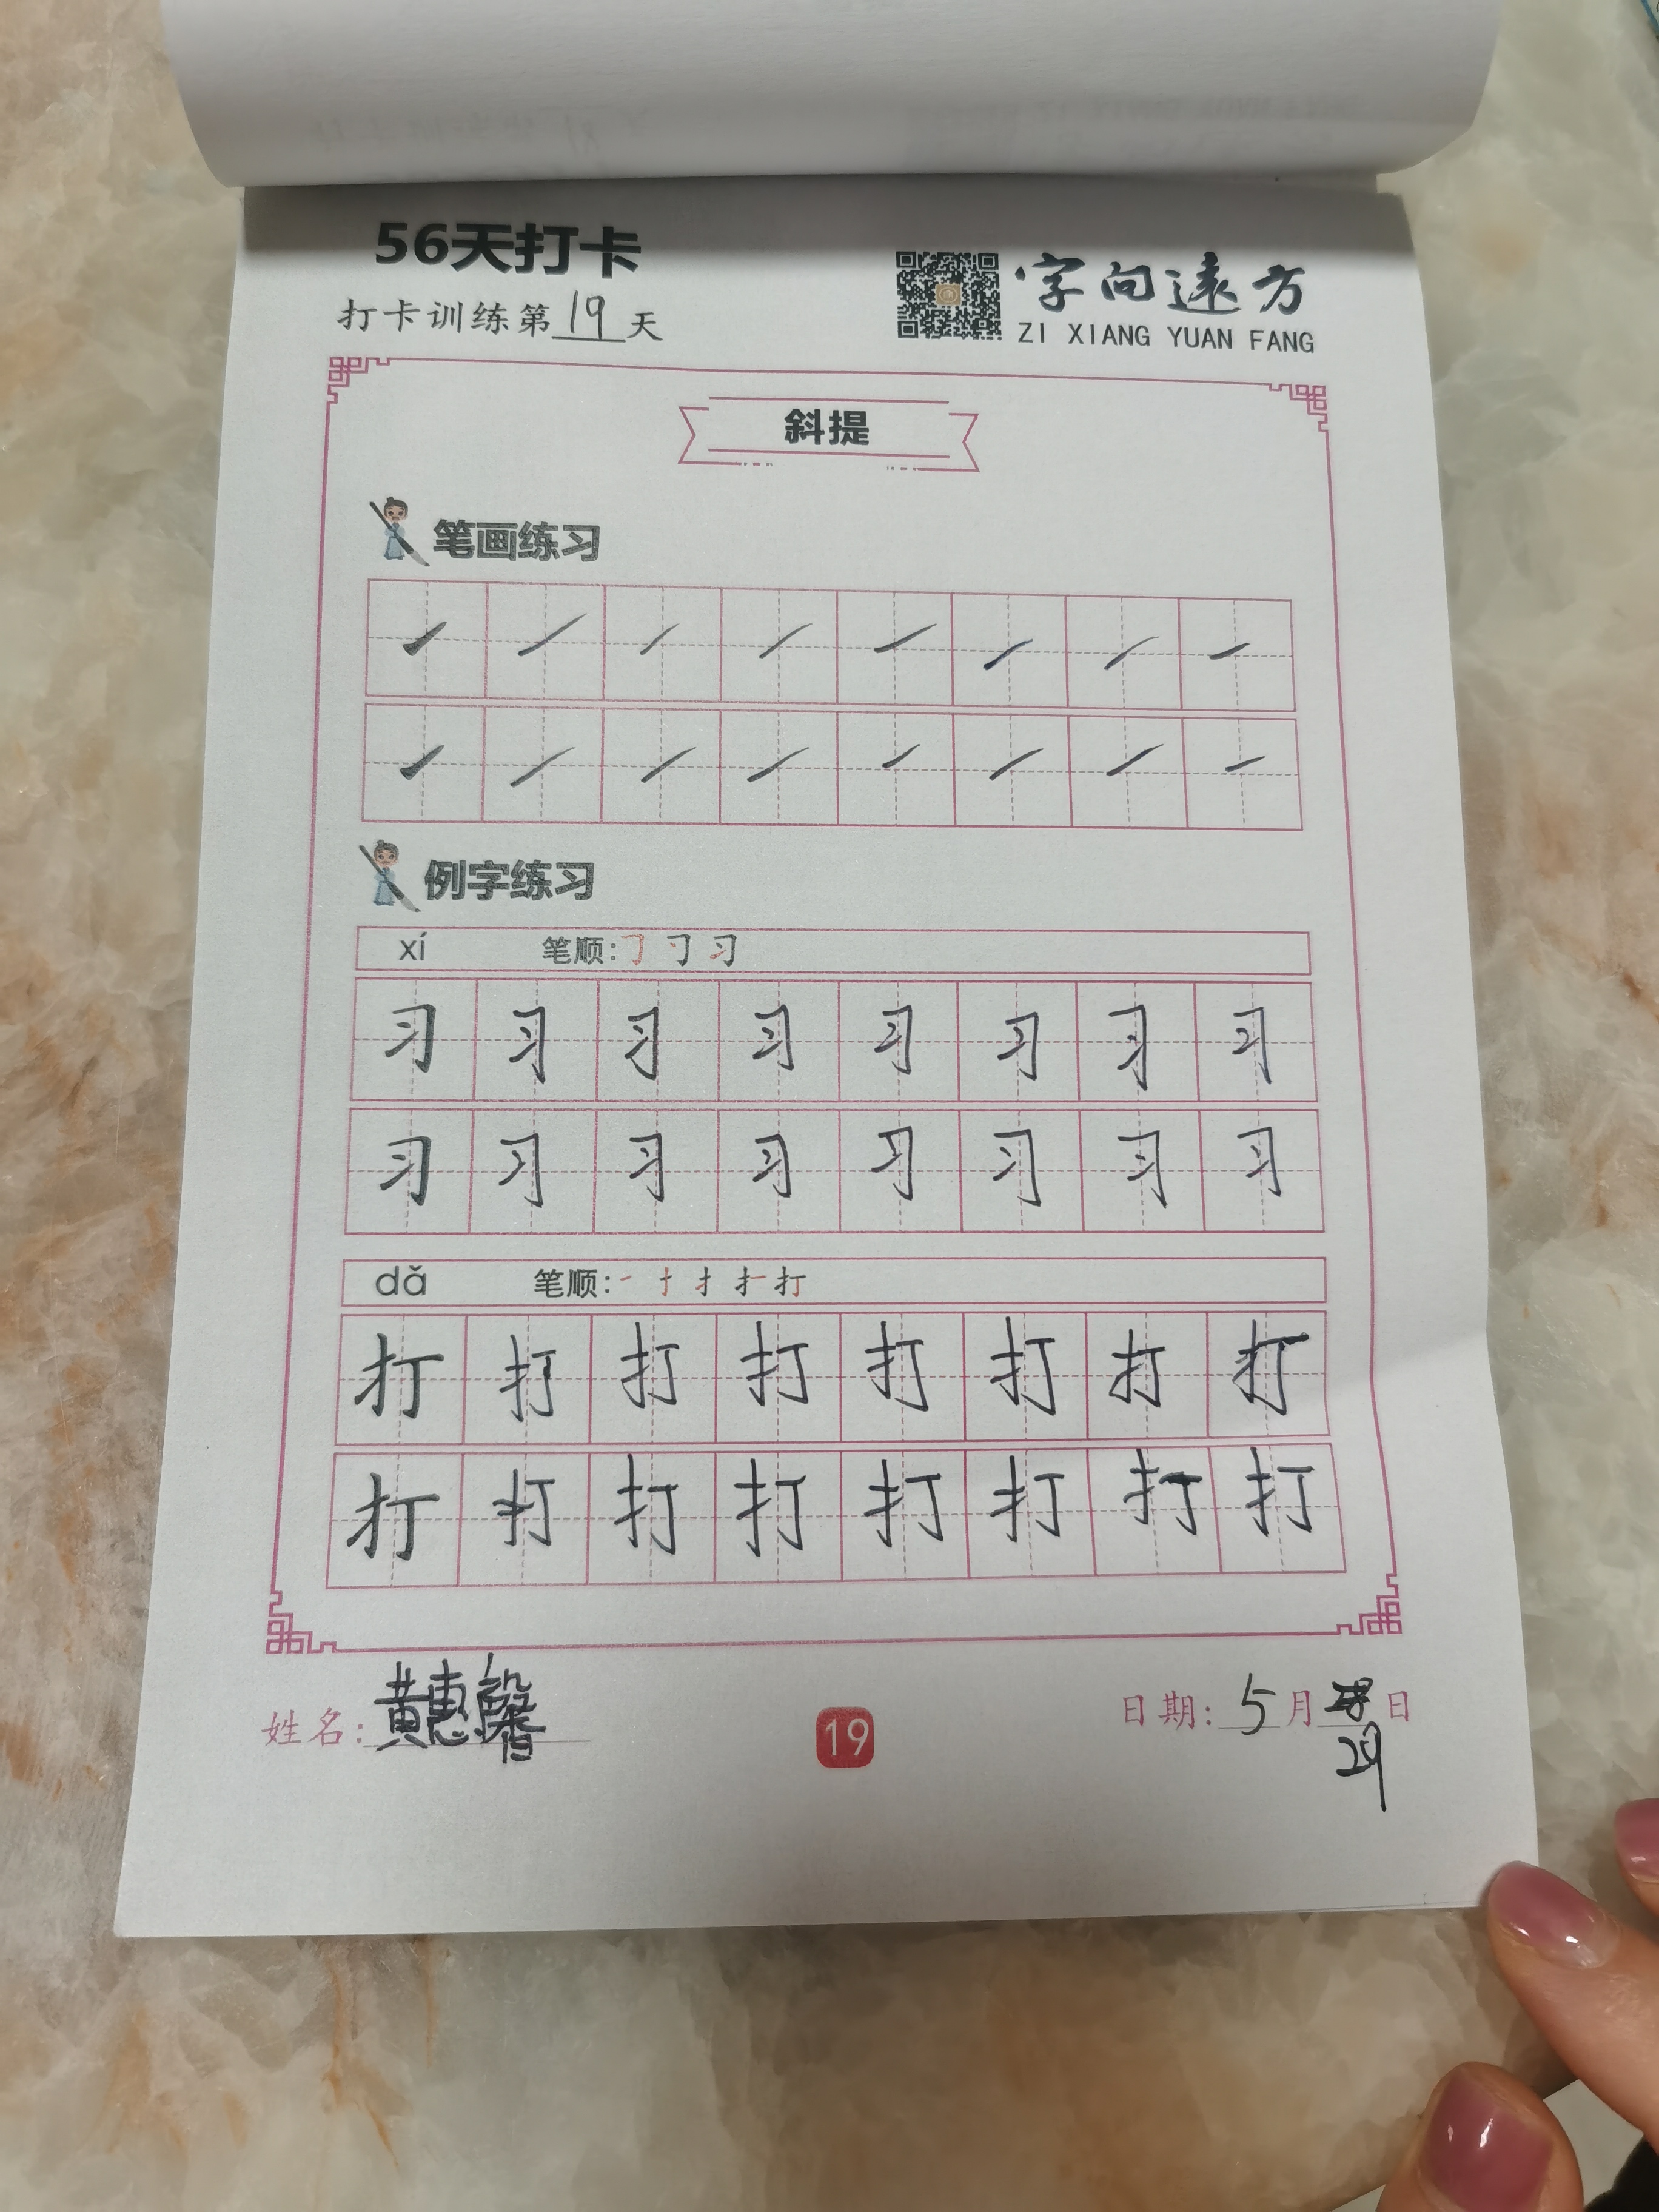 56天打卡
打卡训练第19天
字向远方
ZI XIANG YUAN FANG
斜提
笔画练习
例字练习
xí 笔顺: 习
习 习 习 习 习 习 习 习
习 习 习 习 习 习 习 习
dǎ 笔顺: 一 十 扌 打
打 打 打 打 打 打 打 打
打 打 打 打 打 打 打 打
姓名: 黄惠馨
19
日期: 5月29日